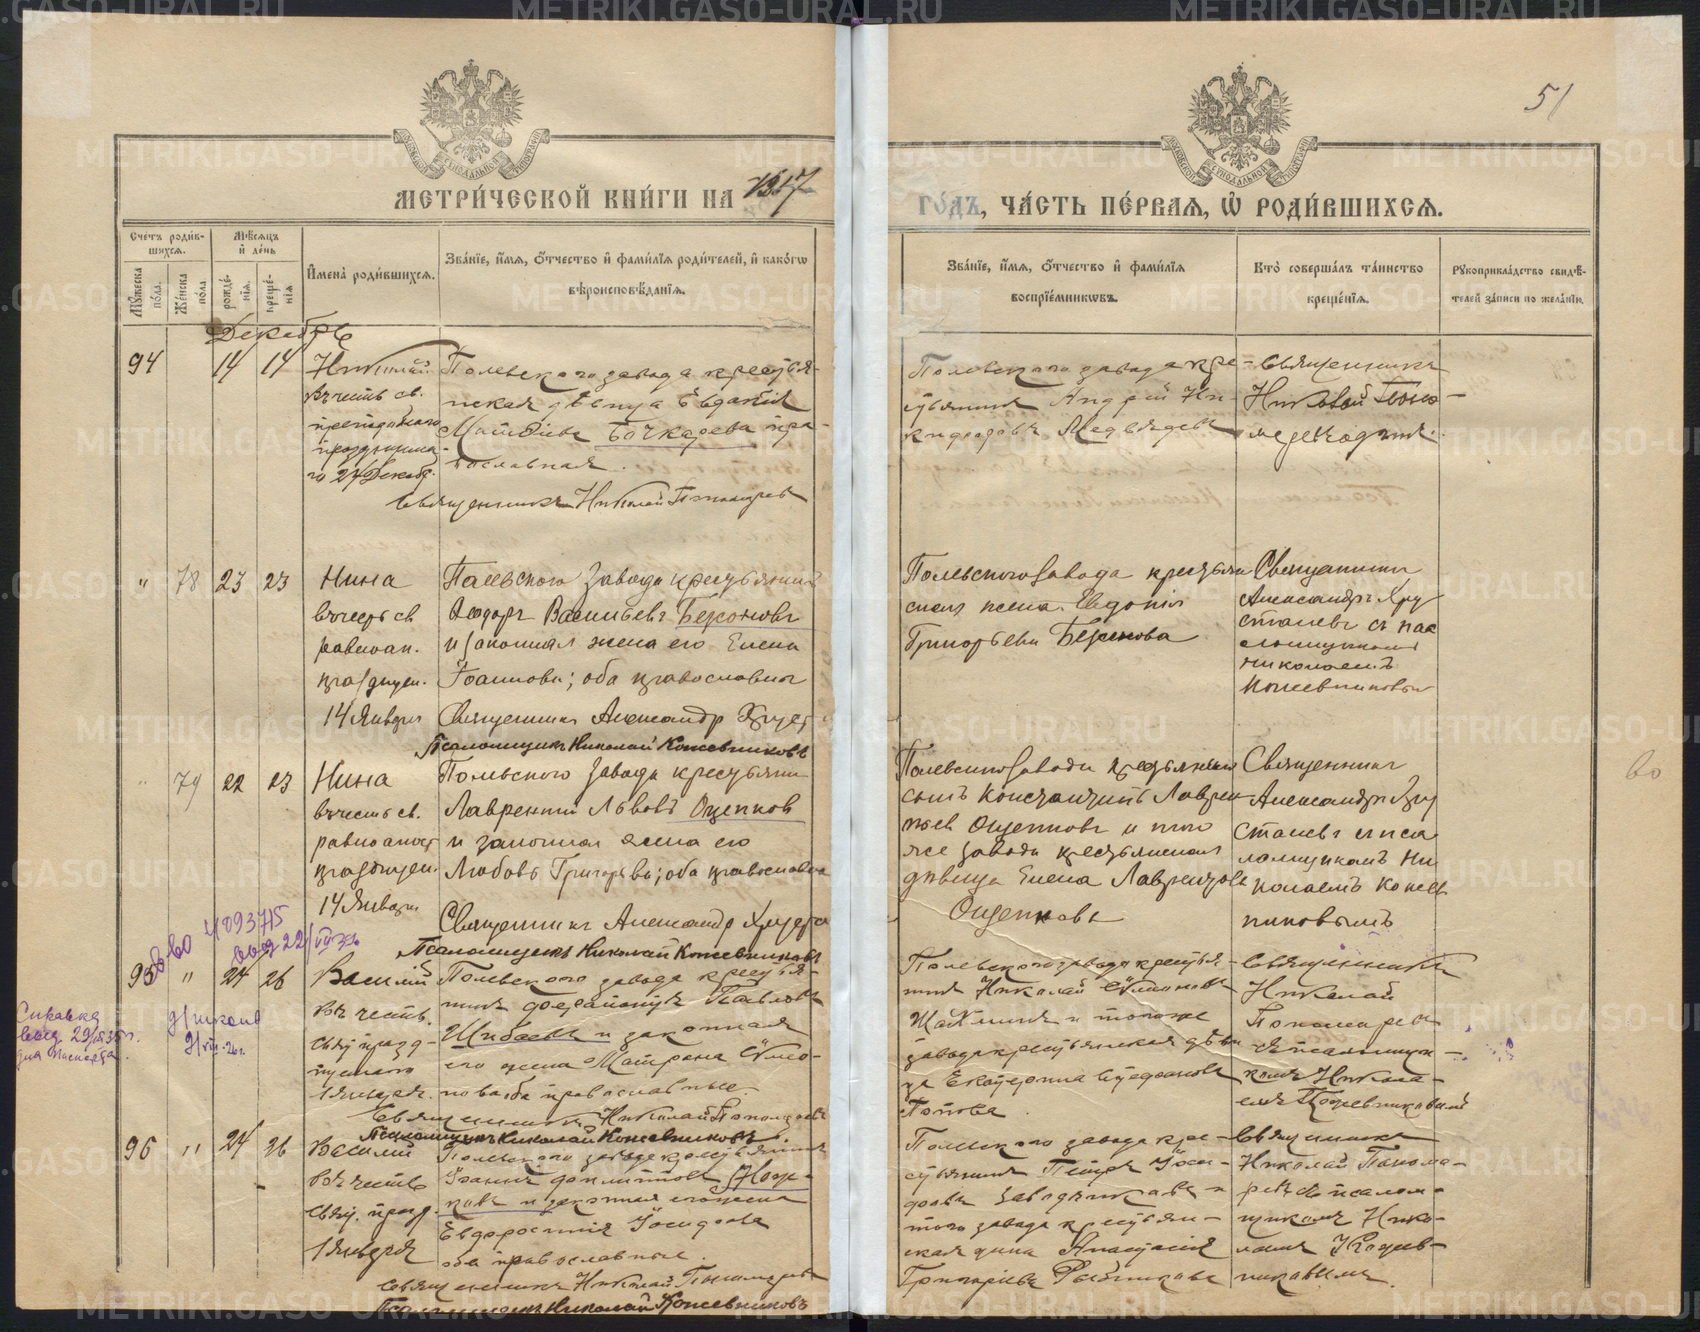 51
МЕТРИ́ЧЕСКОЙ КНИ́ГИ НА 1917
ГО́ДЪ, ЧА́СТЬ ПЕ́РВАЯ, Ѡ РОДИ́ВШИХСЯ.
Сче́тъ роди́в-
шихся.
Му́жеска
по́ла.
Же́нска
по́ла
Мѣ́сяцъ
и де́нь
рожде́-
нія.
креще́-
нія
Имена̀ роди́вшихся.
Зва́ніе, и́мя, о́тчество и фами́лія роди́телей, и како́гѡ
вѣроисповѣ́данія.
Зва́ніе, и́мя, о́тчество и фами́лія
воспріе́мникѡвъ.
Кто̀ соверша́лъ та́инство
креще́нія.
Рукоприкла́дство свидѣ́-
телей за́писи по жела́нію.
Декабрь
94 14 14 Николай
въ честь св.
преподобнаго
праздника
го 24 Декабр.
Полевского завода крестья-
нская дѣвица Евдокія
Матвѣева Бочкарева пра-
вославная.
Священникъ Николай Пономарев
Полевского завода кре-
стьянинъ Андрей Ни-
кандровъ Медвѣдевъ
Священникъ
Николай Поно-
маревъ
" 78 23 23 Нина
въ честь св
равноап.
празднуем.
14 Января
Полевского завода крестьянинъ
Ѳеодоръ Васильевъ Безсоновъ
и законная жена его Елена
Іоаннова; оба православные
Священникъ Александр Хруст
Псаломщикъ Николай Кожевниковъ
Полевского завода крестьян
ская жена Евдокія
Григорьева
Священникъ
Александръ Хру
сталевъ съ пса
ломщикомъ
Николаемъ
Кожевниковым
" 79 22 23 Нина
въ честь св.
равноапост
празднуем.
14 Января
Полевского завода крестьянин
Лаврентій Львовъ Ощепков
и законная жена его
Любовь Григорьева; оба православные
Священникъ Александръ Хруста
Псаломщикъ Николай Кожевниковъ
Полевского завода крестьянскій
сынъ Константинъ Лаврен
тьев Ощепковъ и того
же завода крестьянская
дѣвица Елена Лаврентьева
Ощепкова
Священникъ
Александръ Хру
сталевъ и пса
ломщикомъ Ни
колаемъ Кожев
никовымъ
95 " 24 26 Василій
въ честь
свят. празд-
нуемаго
1 января.
Полевского завода крестья-
нинъ Павловъ
Шибаевъ и законная
его жена Матрона
оба православные
Священникъ Николай Пономаревъ
Псаломщикъ Николай Кожевниковъ.
Полевского завода крестья-
нинъ Николай
и того же
завода крестьянская дѣви
ца Екатерина Стефанова
Попова
Священникъ
Николай
Пономарев
съ псаломщи-
комъ Никола-
емъ Кожевниковымъ
Справка
для паспорта.
96 " 24 26 Василій
въ честь
свят. празд.
1 января
Полевского завода крестьянинъ
Іоаннъ
и законная его жена
Евфросинія
оба православные.
Священникъ Николай Пономаревъ
Псаломщикъ Николай Кожевниковъ
Полевского завода кре-
стьянинъ Петръ
и
того завода крестьян-
ская Анастасія
Григорьева
Священникъ
Николай Понома-
ревъ съ псалом-
щикомъ Нико-
лаемъ Кожев-
никовымъ.